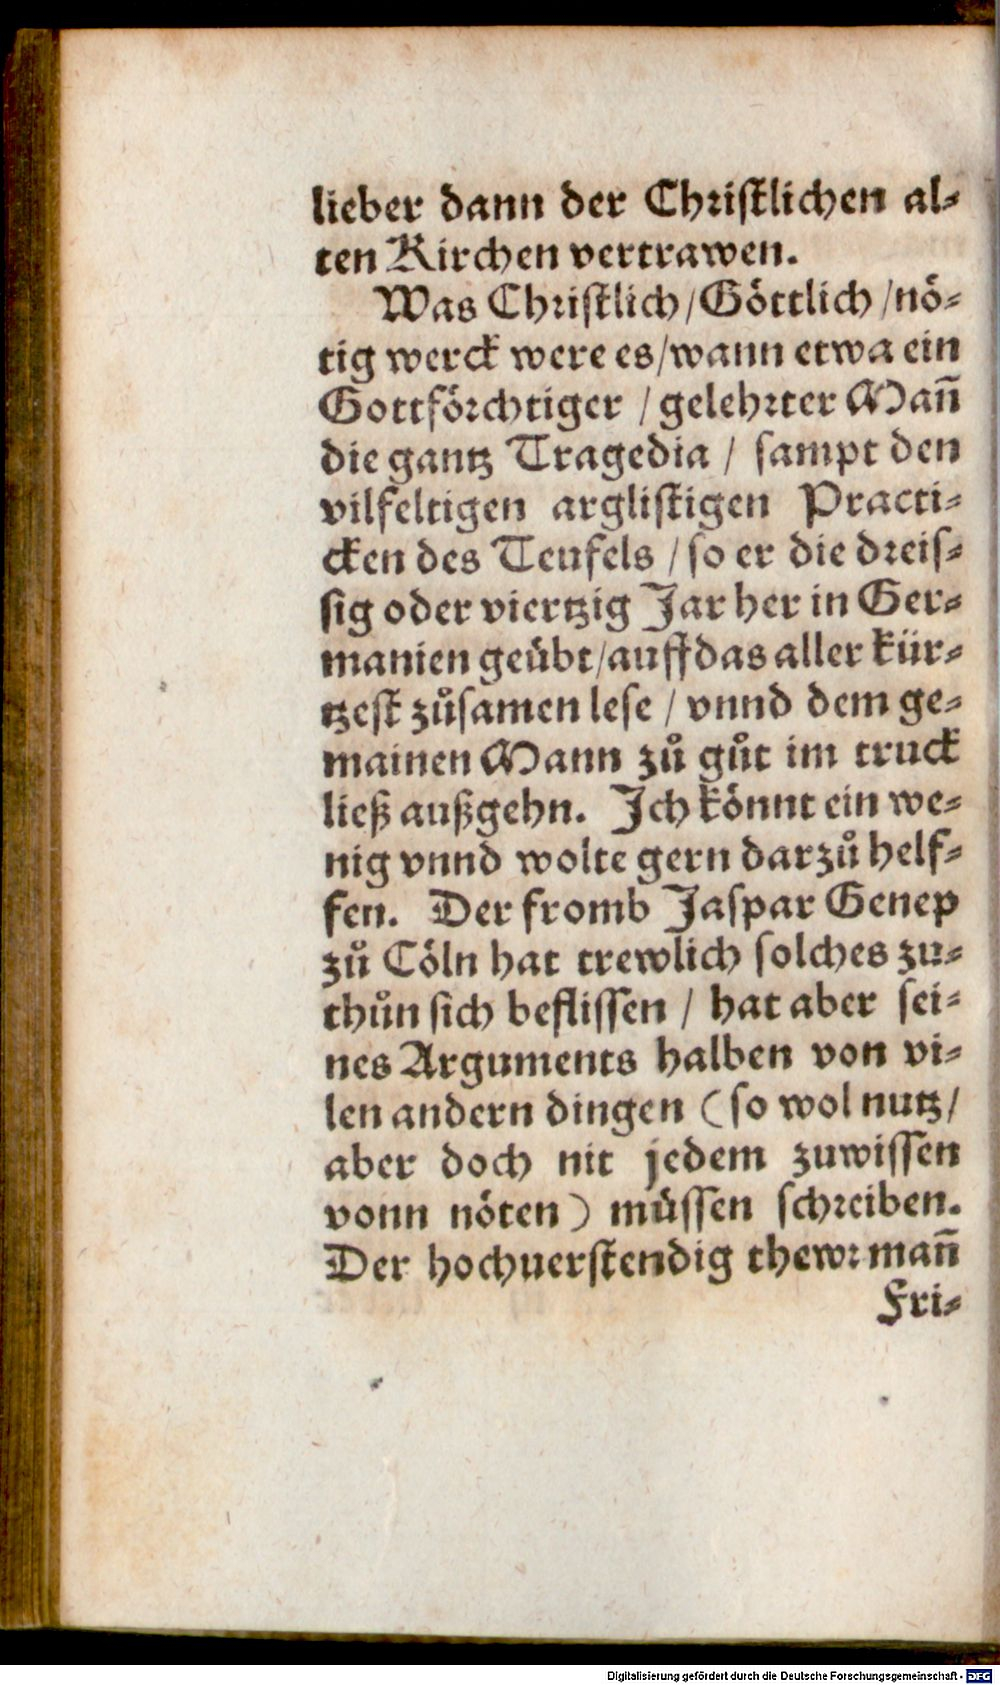 lieber dann der Christlichen al⸗
ten Kirchen vertrawen.
Was Christlich/Göttlich/nö⸗
tig werck were es/wann etwa ein
Gottförchtiger / gelehrter Mañ
die gantz Tragedia / sampt den
vilfeltigen arglistigen Practi⸗
cken des Teufels / so er die dreis⸗
sig oder viertzig Jar her in Ger⸗
manien geübt/auff das aller kür⸗
tzest zůsamen lese / vnnd dem ge⸗
mainen Mann zů gůt im truck
ließ außgehn. Ich könnt ein we⸗
nig vnnd wolte gern darzů helf⸗
fen. Der fromb Jaspar Genep
zů Cöln hat trewlich solches zu⸗
thůn sich beflissen / hat aber sei⸗
nes Arguments halben von vi⸗
len andern dingen (so wol nutz/
aber doch nit jedem zuwissen
vonn nöten) müssen schreiben.
Der hochuerstendig thewr mañ
Fri⸗
Digitalisierung gefördert durch die Deutsche Forschungsgemeinschaft - DFG